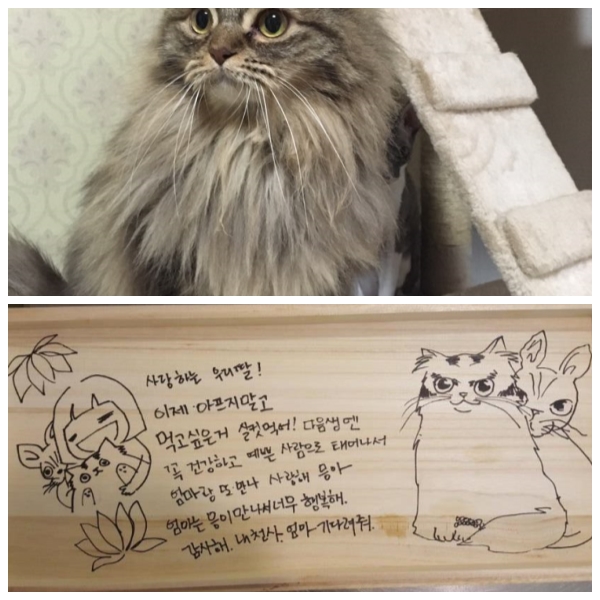 사랑하는 우리딸!
이제 아프지말고
먹고싶은거 실컷먹어! 다음생엔
꼭 건강하고 예쁜 사람으로 태어나서
엄마랑 또 만나 사랑해 뭉아~
엄마는 뭉이만나서너무 행복해.
감사해. 내천사. 엄마 기다려줘.